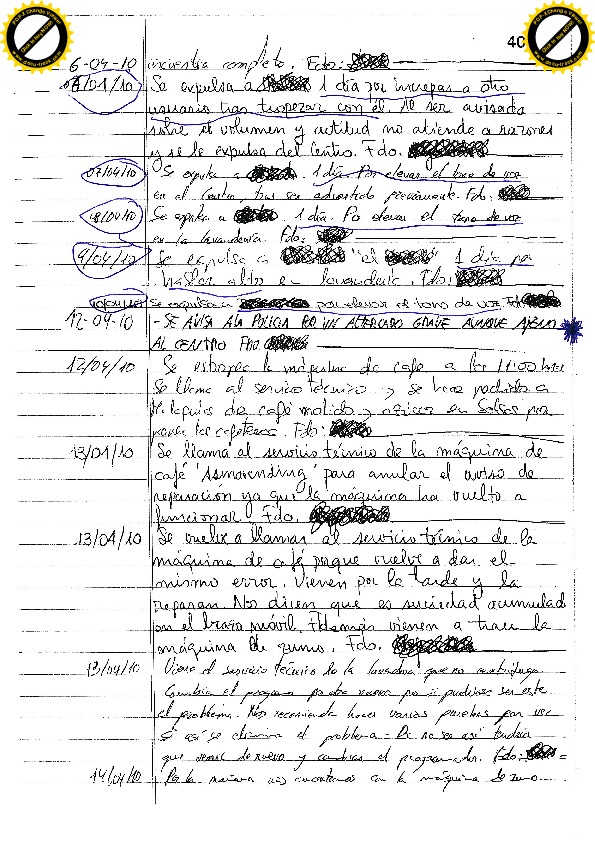 40
6-04-10 incuentra completo. Fdo:
06/01/10 Se expulsa a 1 día por increpar a otro
usuario tras tropezar con él. Al ser avisado
sobre el volumen y actitud no atiende a razones
y se le expulsa del Centro. Fdo.
07/04/10 Se expulsa a . 1 día. Por elevar el tono de voz
en el Centro tras ser advertido previamente. Fdo.
8/04/10 Se expulsa a . 1 día. Por elevar el tono de voz
en la lavandería. Fdo:
9/04/10 Se expulsa a "el " 1 día por
hablar alto en lavandería. Fdo:
Se expulsa a por elevar el tono de voz. Fdo
12-04-10 - SE AVISA A LA POLICIA POR UN ALTERCADO GRAVE AUNQUE AJENO
AL CENTRO FDO
12/04/10 Se estropea la máquina de café a las 11:00 horas
Se llama al servicio técnico y se hace pedido a
de café molido y azúcar en
para las cafeteras. Fdo:
13/01/10 Se llama al servicio técnico de la máquina de
café ' ' para anular el aviso de
reparación ya que la máquina ha vuelto a
funcionar. Fdo.
13/04/10 Se vuelve a llamar al servicio técnico de la
máquina de café porque vuelve a dar el
mismo error. Vienen por la tarde y la
reparan. Nos dicen que es suciedad acumulada
en el brazo móvil. Además vienen a traer la
máquina de zumo. Fdo.
13/04/10 Viene el servicio técnico de la lavadora que no centrifuga.
Cambia el programa por otro nuevo por si pudiese ser este
el problema. Nos recomienda hacer varias pruebas para ver
si así se elimina el problema. De no ser así tendría
que venir de nuevo y cambiar el programador. Fdo:
14/04/10 Por la mañana nos encontramos con la máquina de zumo